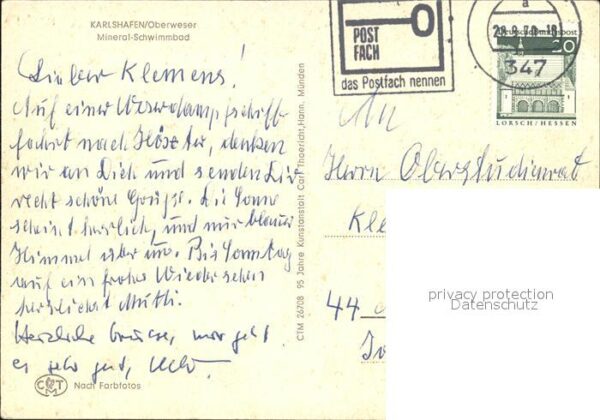 KARLSHAFEN/Oberweser
Mineral-Schwimmbad
Lieber Klemens!
Auf einer Weserdampfschiff-
fahrt nach Höxter, denken
wir an Dich und senden Dir
recht schöne Grüße. Die Sonne
scheint herrlich, und nur blauer
Himmel über uns. Bis Sonntag
auf ein frohes Wiedersehen
herzlichst Mutti.
Herzliche Grüsse, mir geht
es sehr gut,
Nach Farbfotos
CTM 26708 95 Jahre Kunstanstalt Carl Thoericht, Hann. Münden
POST
FACH
das Postfach nennen
a
347
Deutsche Bundespost
20
LORSCH/HESSEN
An
Herrn Oberstudienrat
Kle
44
privacy protection
Datenschutz